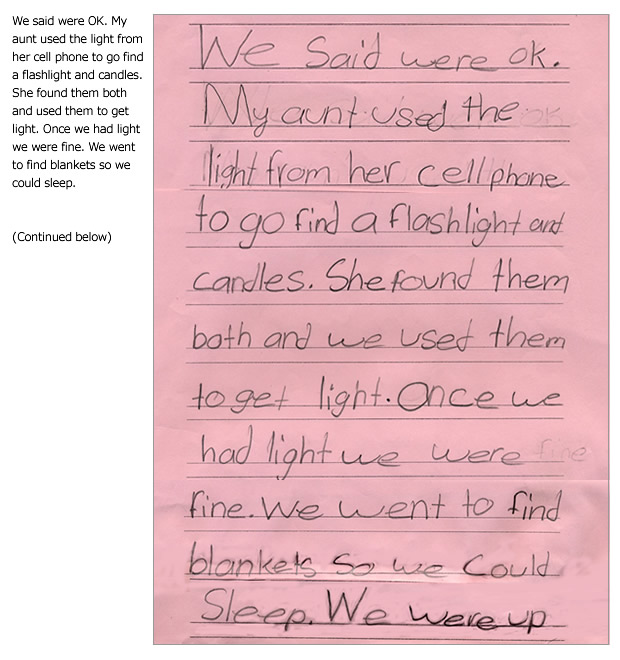 We said were OK. My
aunt used the light from
her cell phone to go find
a flashlight and candles.
She found them both
and used them to get
light. Once we had light
we were fine. We went
to find blankets so we
could sleep.
(Continued below)
We Said were ok.
My aunt used the
light from her cell phone
to go find a flashlight and
candles. She found them
both and we used them
to get light. Once we
had light we were fine
fine. We went to find
blankets So we Could
Sleep. We were up